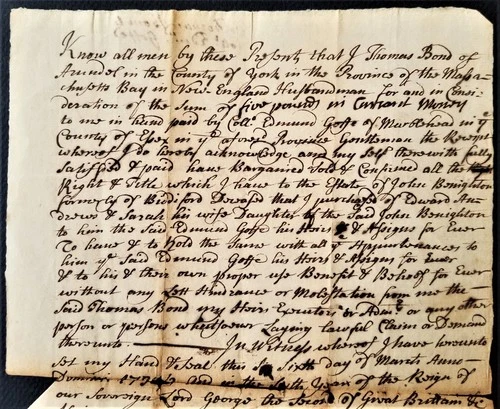 Know all men by these Present that I Thomas Bond of
Arundel in the County of York in the Province of the Massa-
chusetts Bay in New-England Husbandman for and in Consi-
deration of the Sum of five pounds in Currant Money
to me in hand paid by Coll. Edmund Goffe of Marblehead in ye
County of Essex in ye aforesd Province Gentleman the Receipt
whereof I do hereby acknowledge and my self therewith fully
Satisfied & paid have Bargained Sold & Confirmed all the
Right & Title which I have to the Estate of John Benighton
formerly of Biddiford Deceased that I purchased of Edward An-
drews & Sarah his wife Daughter of the Said John Benighton
to him the Said Edmund Goffe his Heirs & Assigns for Ever
To have & to Hold the Same with all ye Appurtenances to
him ye Said Edmund Goffe his Heirs & Assigns for Ever
& to his & their own proper use Benefit & Behoof for Ever
without any Lett Hindrance or Molestation from me the
Said Thomas Bond my Heirs Executors or Admrs or any other
person or persons whatsoever Laying lawful Claim or Demand
thereunto In Witness whereof I have hereunto
set my Hand & Seal this Sixth day of March Anno
Domini and in the Year of the Reign of
our Sovereign Lord George the Second of Great Brittain &c